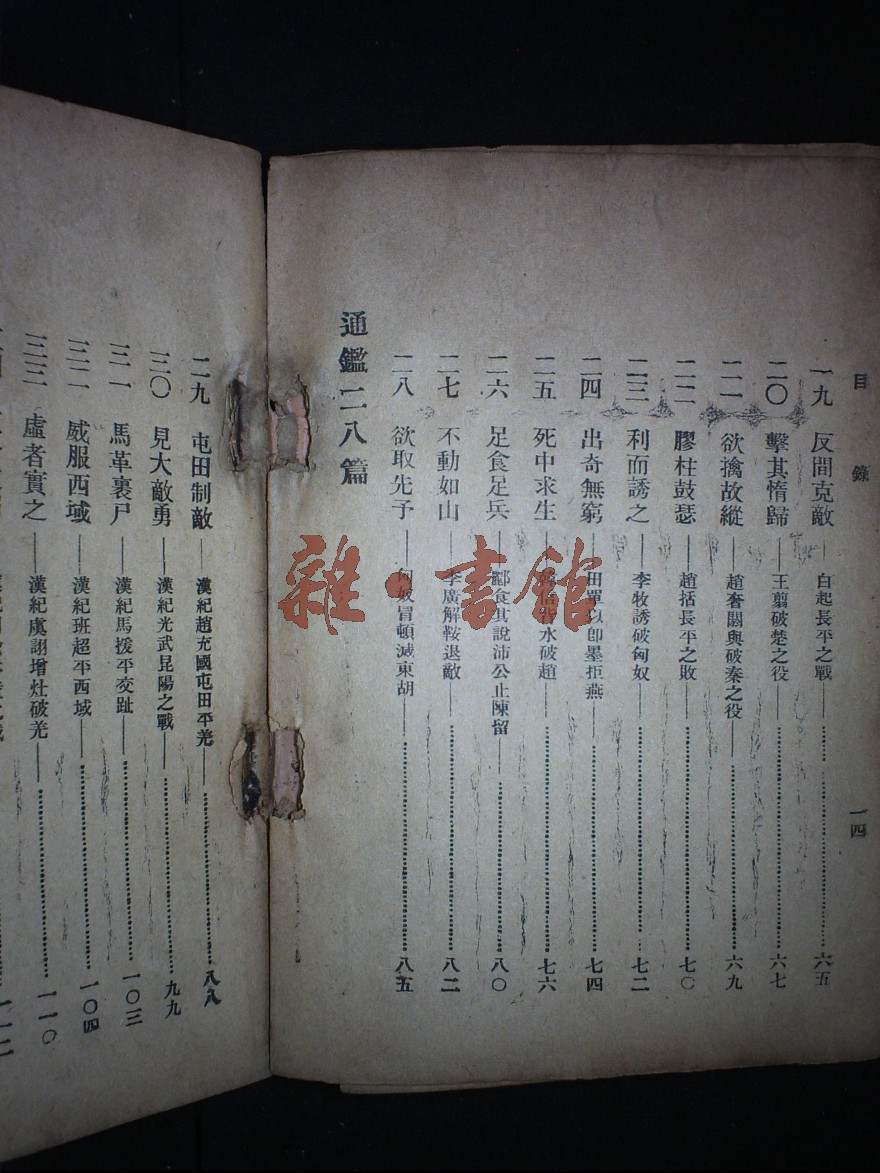 目錄 一四
一九 反間克敵——白起長平之戰——六五
二〇 擊其惰歸——王翦破楚之役——六七
二一 欲擒故縱——趙奢閼與破秦之役——六九
二二 膠柱鼓瑟——趙括長平之敗——七〇
二三 利而誘之——李牧誘破匈奴——七二
二四 出奇無窮——田單以卽墨拒燕——七四
二五 死中求生——水破趙——七六
二六 足食足兵——酈食其說沛公止陳留——八〇
二七 不動如山——李廣解鞍退敵——八二
二八 欲取先予——匈奴冒頓滅東胡——八五
通鑑二八篇
二九 屯田制敵——漢紀趙充國屯田平羌——八八
三〇 見大敵勇——漢紀光武昆陽之戰——九九
三一 馬革裹尸——漢紀馬援平交趾——一〇三
三二 威服西域——漢紀班超平西域——一〇四
三三 虛者實之——漢紀虞詡增灶破羌——一一〇
一一二
雜·書館